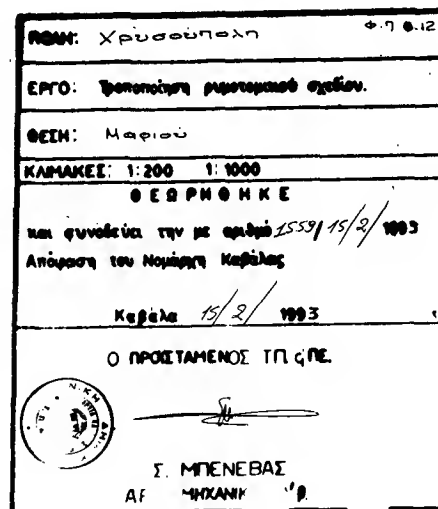 ΠΟΛΗ: Χρυσούπολη Φ.7 Θ.12
ΕΡΓΟ: Τροποποίηση ρυμοτομικού σχεδίου.
ΘΕΣΗ: Μαριού
ΚΛΙΜΑΚΕΣ: 1:200 1:1000
ΘΕΩΡΗΘΗΚΕ
και συνοδεύει την με αριθμό 1559/15/2/1993
Απόφαση του Νομάρχη Καβάλας
Καβάλα 15/2/1993
Ο ΠΡΟΪΣΤΑΜΕΝΟΣ ΤΠ ΠΕ.
Σ. ΜΠΕΝΕΒΑΣ
ΜΗΧΑΝΙΚ